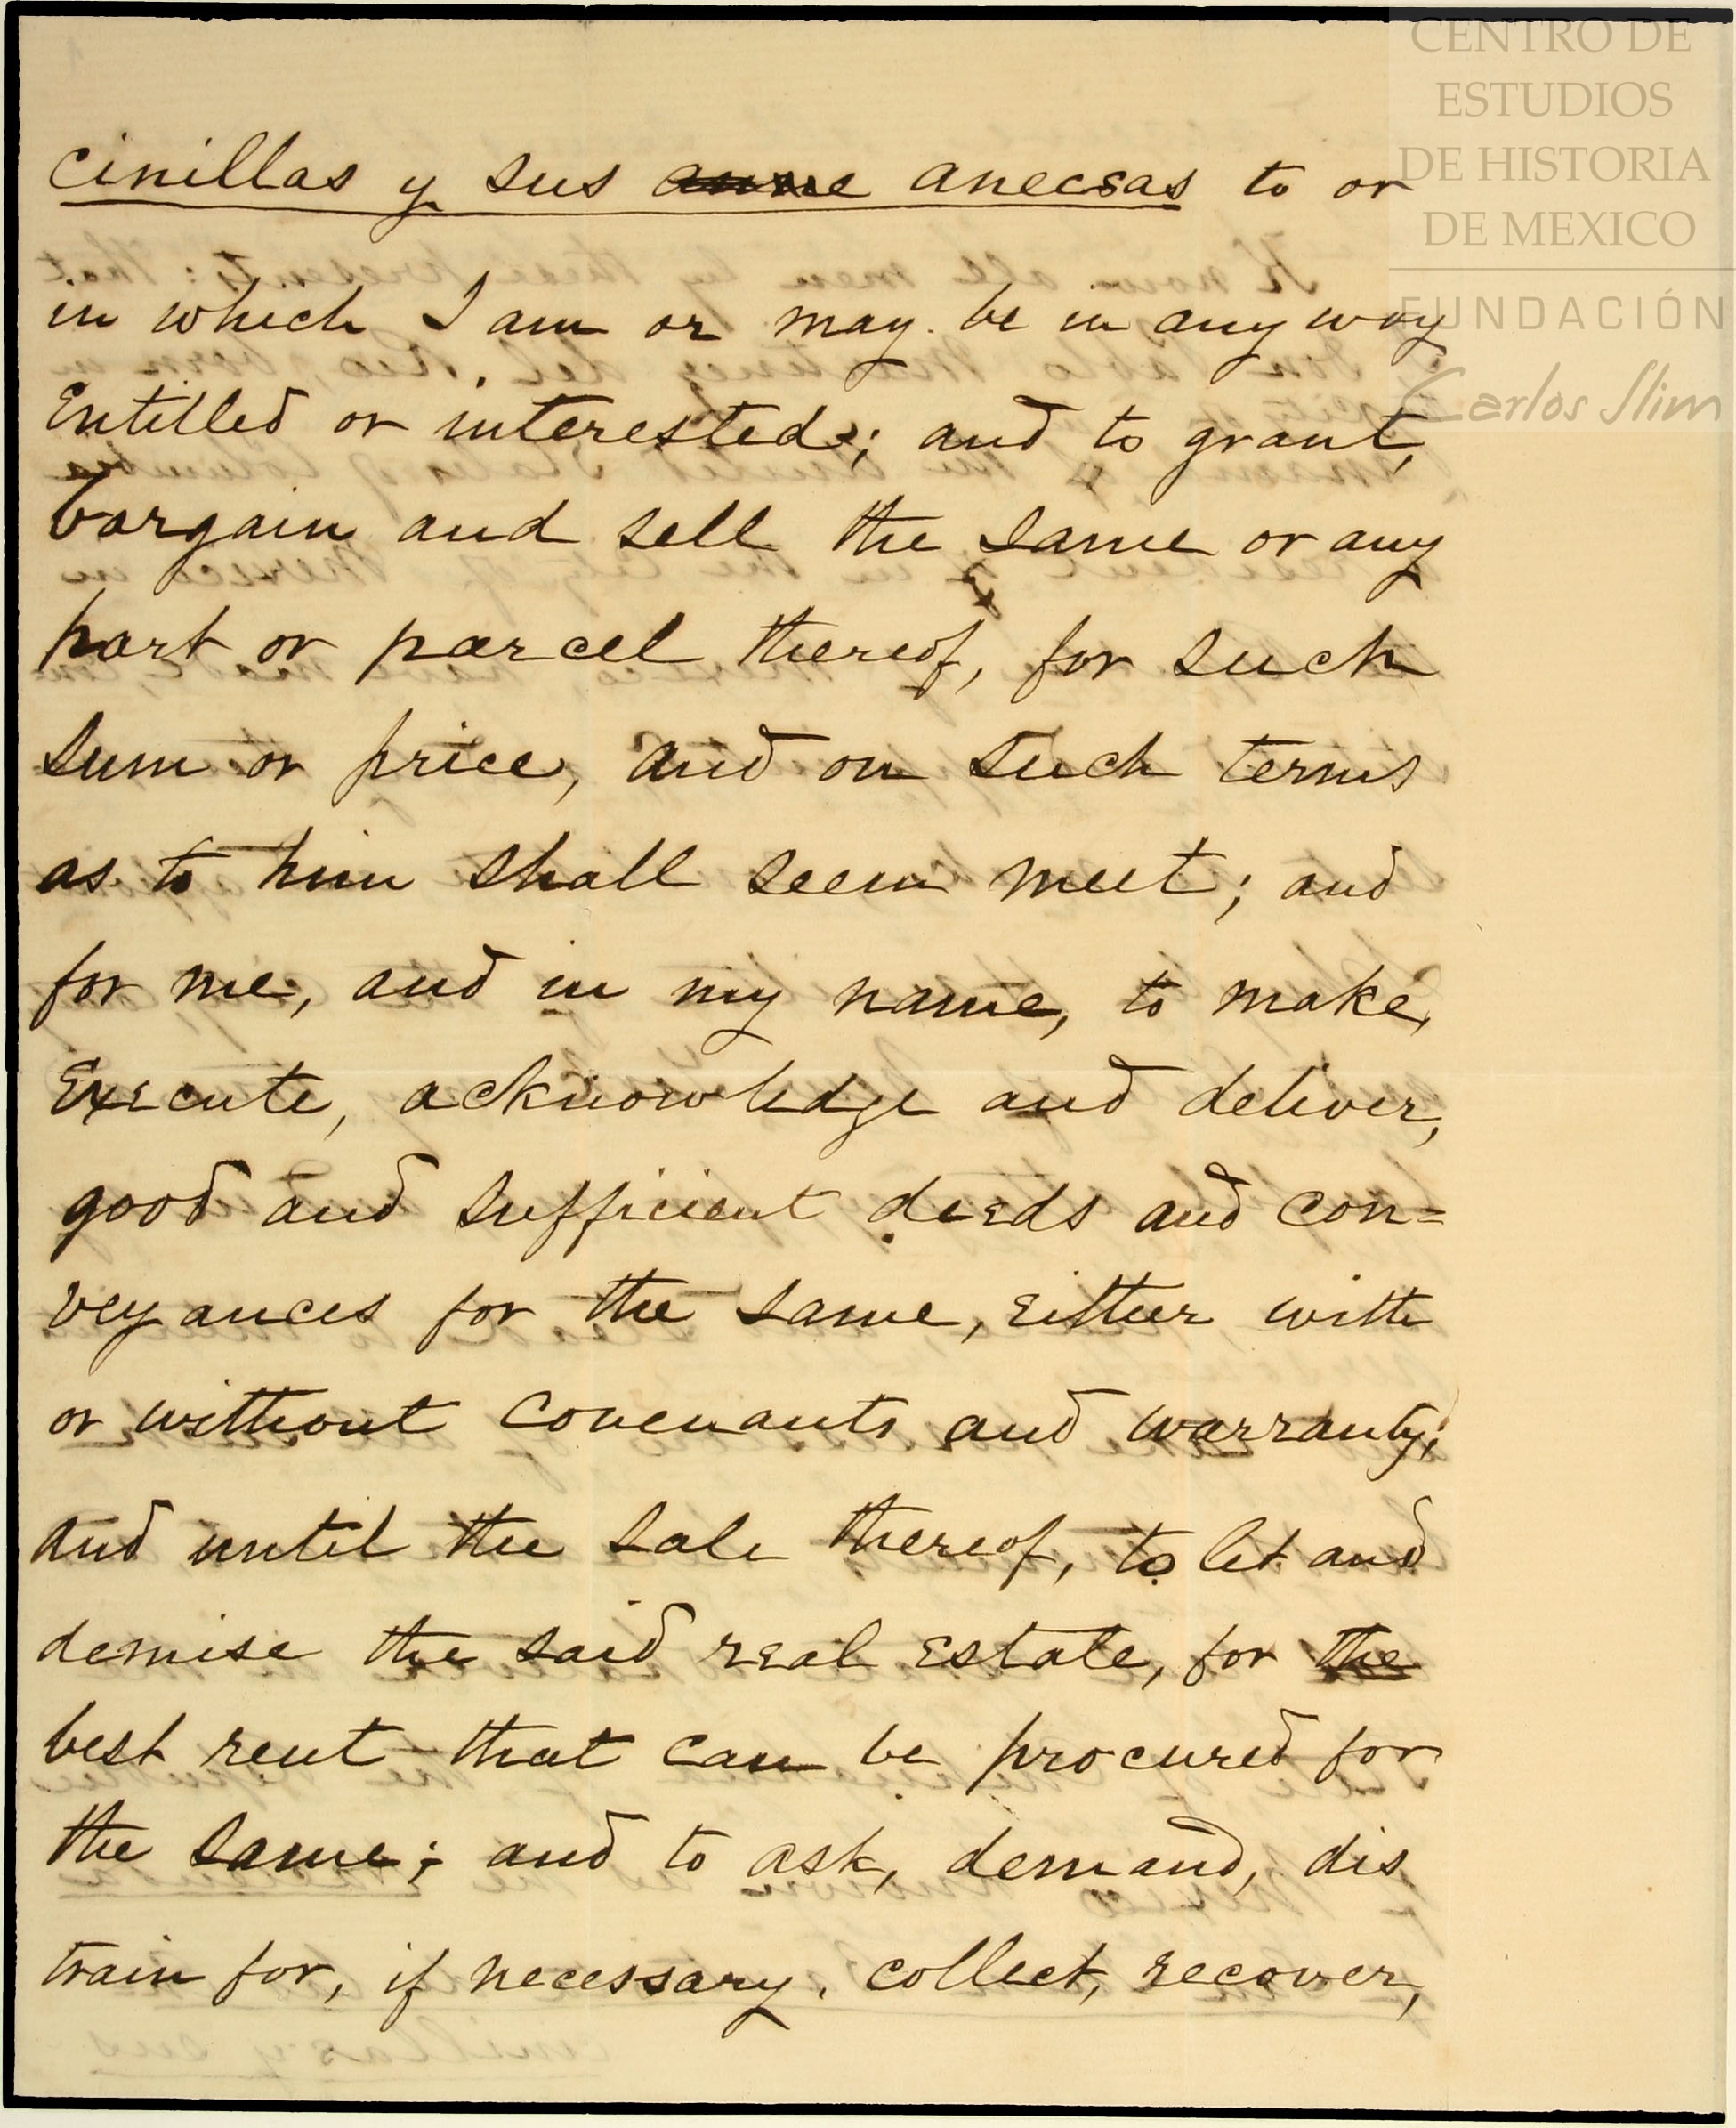 CENTRO DE
ESTUDIOS
DE HISTORIA
DE MEXICO
FUNDACIÓN
Carlos Slim
cinillas y sus anecsas to or
in which I am or may be in any way
Entitled or interested; and to grant,
bargain and sell the same or any
part or parcel thereof, for such
sum or price, and on such terms
as to him shall seem meet; and
for me, and in my name, to make,
Execute, acknowledge and deliver,
good and sufficient deeds and con=
veyances for the same, either with
or without covenants and warranty;
and until the sale thereof, to let and
demise the said real Estate, for the
best rent that can be procured for
the same; and to ask, demand, dis
train for, if necessary, collect, recover,